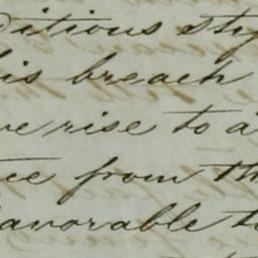 ditious sty
his breach
ve rise to a
ce from th
avorable to